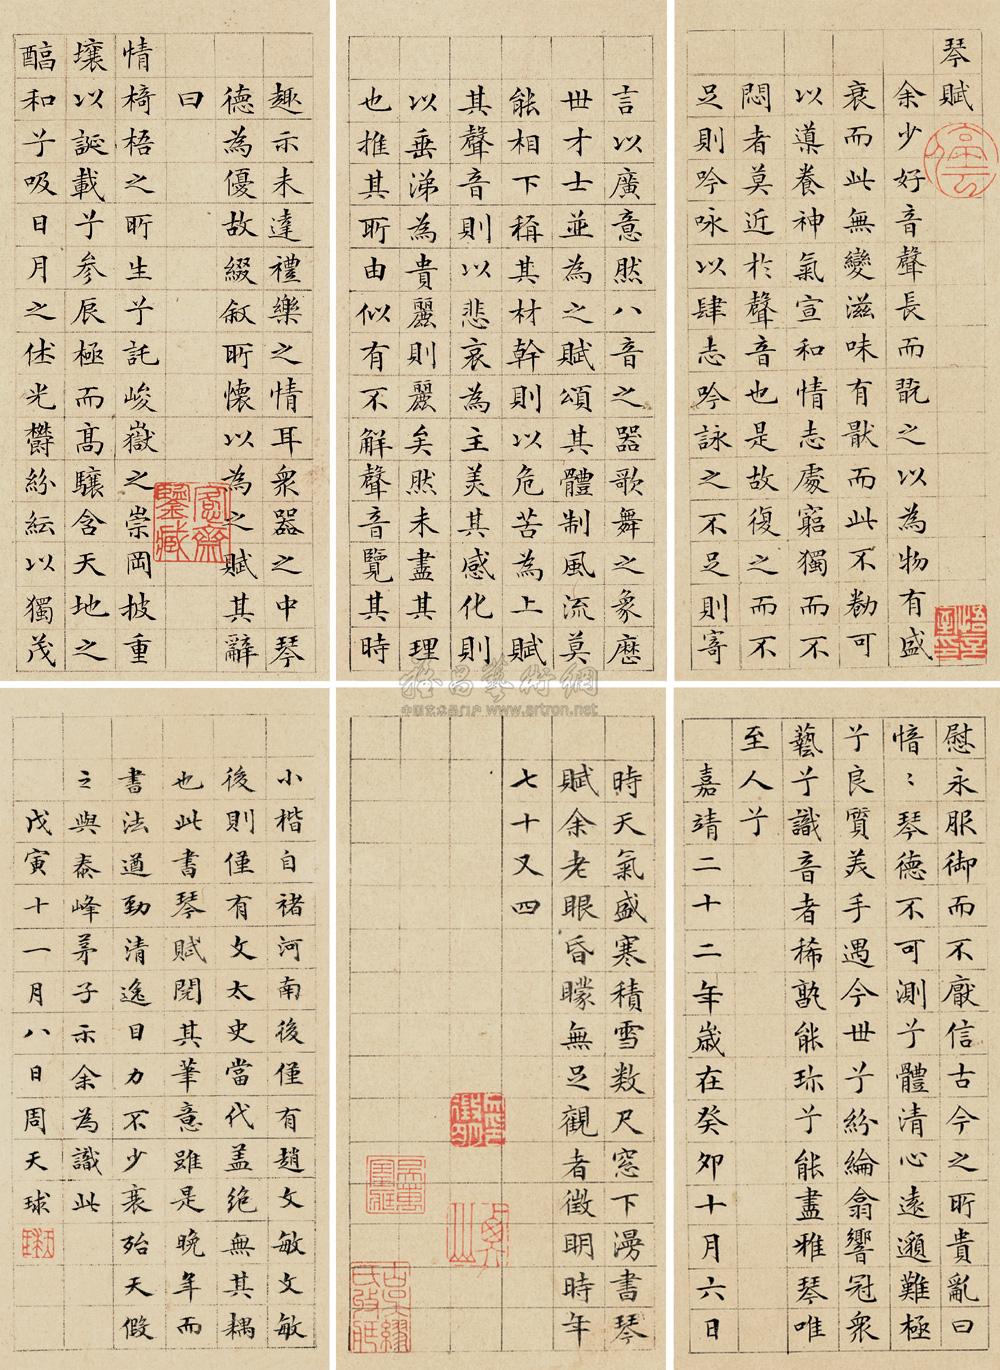 琴賦
余少好音聲長而翫之以為物有盛
衰而此無變滋味有猒而此不勌可
以導養神氣宣和情志處窮獨而不
悶者莫近於聲音也是故復之而不
足則吟咏以肆志吟詠之不足則寄
言以廣意然八音之器歌舞之象歷
世才士並為之賦頌其體制風流莫
能相下稱其材幹則以危苦為上賦
其聲音則以悲哀為主美其感化則
以垂涕為貴麗則麗矣然未盡其理
也推其所由似有不解聲音覽其時
趣示未達禮樂之情耳衆器之中琴
德為優故綴叙所懷以為之賦其辭
曰
情椅梧之所生兮託峻嶽之崇岡披重
壤以誕載兮參辰極而高驤含天地之
醕和兮吸日月之休光欝紛紜以獨茂
慰永服御而不厭信古今之所貴亂曰
愔〻琴德不可測兮體清心遠邈難極
兮良質美手遇今世兮紛綸翕響冠衆
藝兮識音者稀孰能珎兮能盡雅琴唯
至人兮
嘉靖二十二年歲在癸卯十月六日
時天氣盛寒積雪数尺窓下漫書琴
賦余老眼昏矇無足觀者徵明時年
七十又四
小楷自褚河南後僅有趙文敏文敏
後則僅有文太史當代盖絶無其耦
也此書琴賦閱其筆意雖是晚年而
書法遒勁清逸目力不少衰殆天假
之與泰峰茅子示余為識此
戊寅十一月八日周天球
雅昌藝術網
中国艺术品门户 www.artron.net